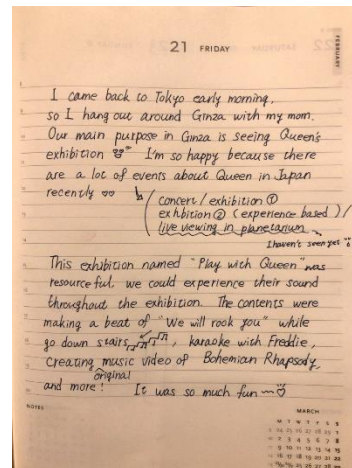 21 FRIDAY
FEBRUARY
I came back to Tokyo early morning,
so I hang out around Ginza with my mom.
Our main purpose in Ginza is seeing Queen's
exhibition I'm so happy because there
are a lot of events about Queen in Japan
recently
concert / exhibition ①
exhbition ② (experience based) /
live viewing in planetarium
I haven't seen yet
This exhibition named "Play with Queen" was
resourceful, we could experience their sound
throughout the exhibition. The contents were
making a beat of "We will rook you" while
go down stairs, karaoke with Freddie,
creating music video of Bohemian Rhapsody,
original
and more! It was so much fun
NOTES
MARCH
M T W T F S S
2 3 4 5 6 7 8
9 10 11 12 13 14 15
16 17 18 19 20 21 22